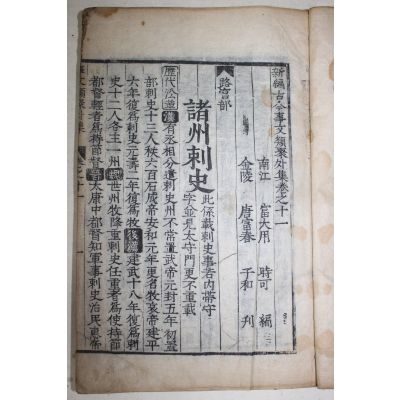 新編古今事文類聚外集卷之十一
南江 富大用 時可 編
金陵 唐富春 子和 刊
路官部
諸州刺史 此係載刺史事若內帶守
字並是太守門更不重載
歷代沿革 漢有丞相分遣刺史州不常置武帝元封五年初置
部刺史十三人秩六百石成帝綏和元年更名牧哀帝建平
六年復為刺史元壽二年復為牧後漢建武十八年復為刺
史十二人各主一州 世州牧隆重刺史任重者為使持節
都督輕者為持節督晉太康中都督知軍事刺史治民